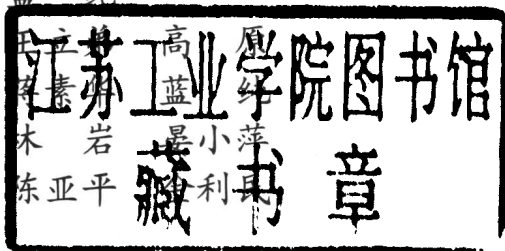 江苏工业学院图书馆
藏书章
王立 高 原
蓝
木 岩 晏小萍
陈亚平 利民